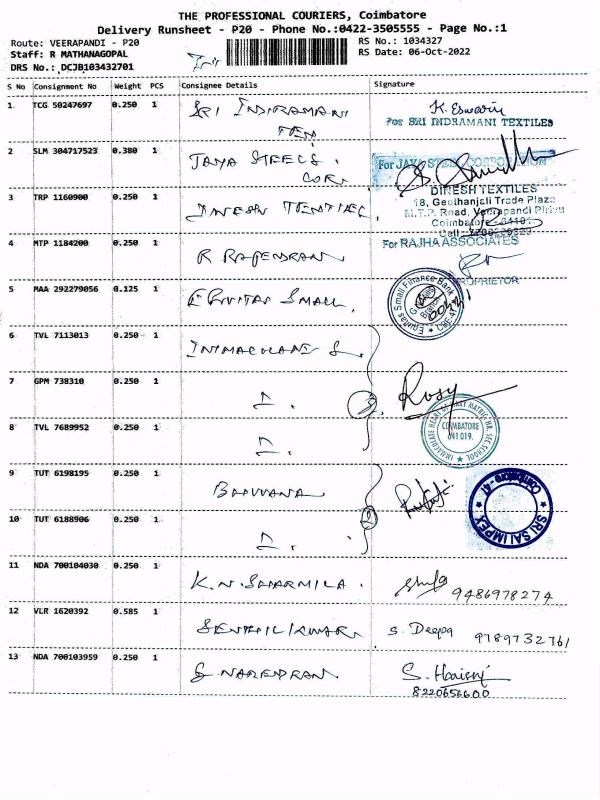 THE PROFESSIONAL COURIERS, Coimbatore
Delivery Runsheet - P20 - Phone No.:0422-3505555 - Page No.:1
Route: VEERAPANDI - P20
RS No.: 1034327
Staff: R MATHANAGOPAL
RS Date: 06-Oct-2022
DRS No.: DCJB103432701
S No Consignment No Weight PCS Consignee Details Signature
1 TCG 50247697 0.250 1 SRI INDIRAMANI
TEN
K. Eswari
For SRI INDRAMANI TEXTILES
2 SLM 304717523 0.380 1 JAYA STEELS.
COR.
For JAYA STEEL CORPORATION
3 TRP 1160900 0.250 1 DINESH
DINESH TEXTILES
18, Geethanjali Trade Plaza
M.T.P. Road, Veerapandi Pirivu
Coimbatore -
Cell
4 MTP 1184200 0.250 1 R RAJENDRAN
For RAJHA ASSOCIATES
PROPRIETOR
5 MAA 292279056 0.125 1 SMALL.
Equitas Small Finance Bank
CBE-47
6 TVL 7113013 0.250 1
7 GPM 738310 0.250 1
3
Rosy
8 TVL 7689952 0.250 1
IMMACULATE HEART OF MARY MATRIC HR. SEC. SCHOOL
COIMBATORE
641 019.
9 TUT 6198195 0.250 1 BHAVANA
SRI SAI IMPEX
Coimbatore - 47
10 TUT 6188906 0.250 1
2
11 NDA 700104030 0.250 1 K.N. SHARMILA.
9486978274
12 VLR 1620392 0.585 1 SENTHILKUMAR
S. Deepa 9789732761
13 NDA 700103959 0.250 1 S NARENDRAN
S. Harini
8220656600